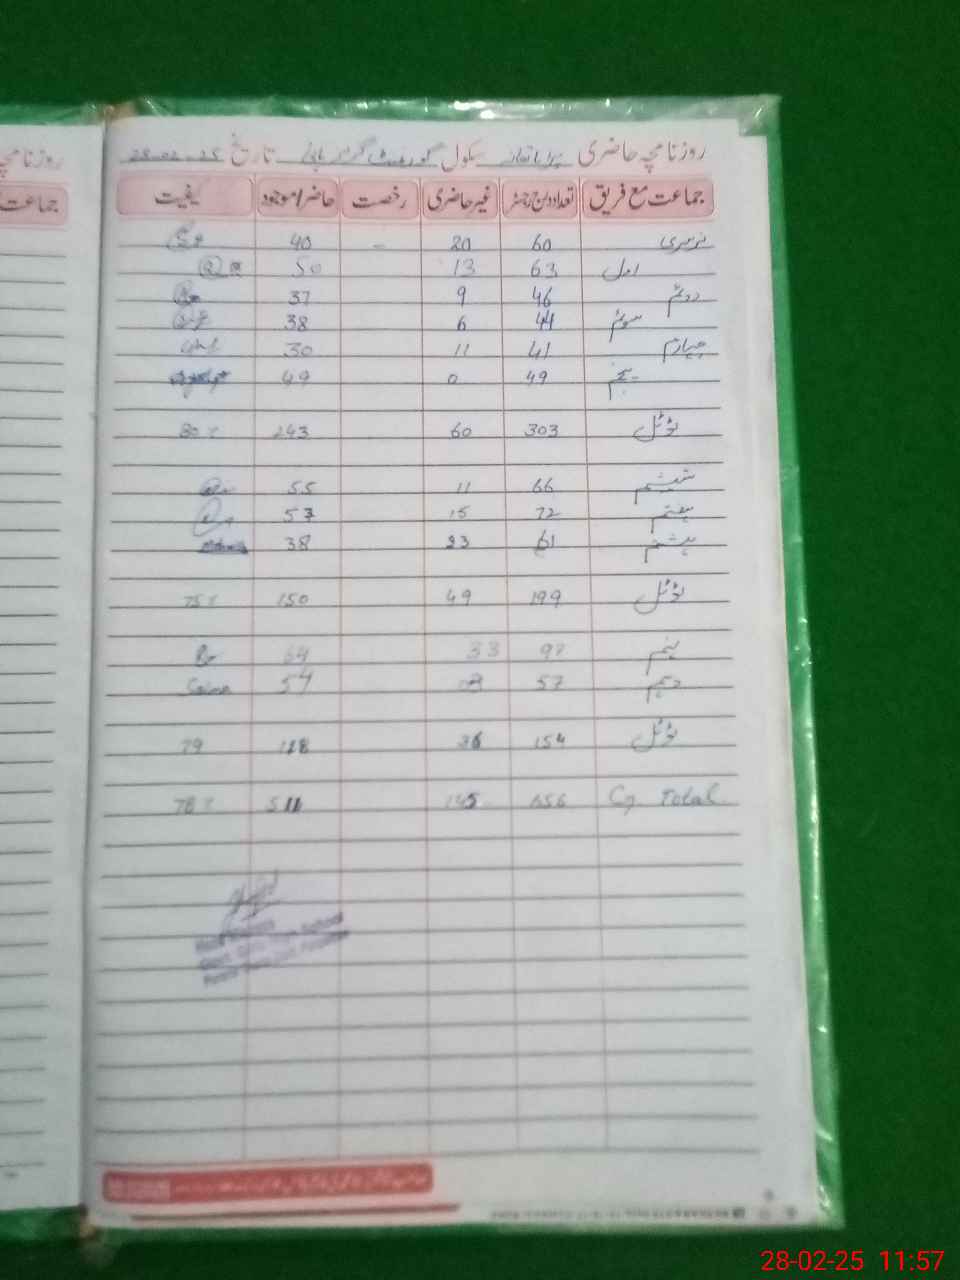 روزنامچہ حاضری برائے سکول گورنمنٹ گرلز ہائی تاریخ 28-02-25
جماعت مع فریق تعداد درج رجسٹر غیر حاضری رخصت حاضر/موجود کیفیت
نرسری 60 20 - 40
اول 63 13 50
دوئم 46 9 37
سوئم 44 6 38
چہارم 41 11 30
پنجم 49 0 49
ٹوٹل 303 60 243 80%
ششم 66 11 55
ہفتم 72 15 57
ہشتم 61 23 38
ٹوٹل 199 49 150 75%
نہم 97 33 64
دہم 57 03 54
ٹوٹل 154 36 118 79
G Total 656 145 511 78%
روزنامچہ
جماعت
28-02-25 11:57